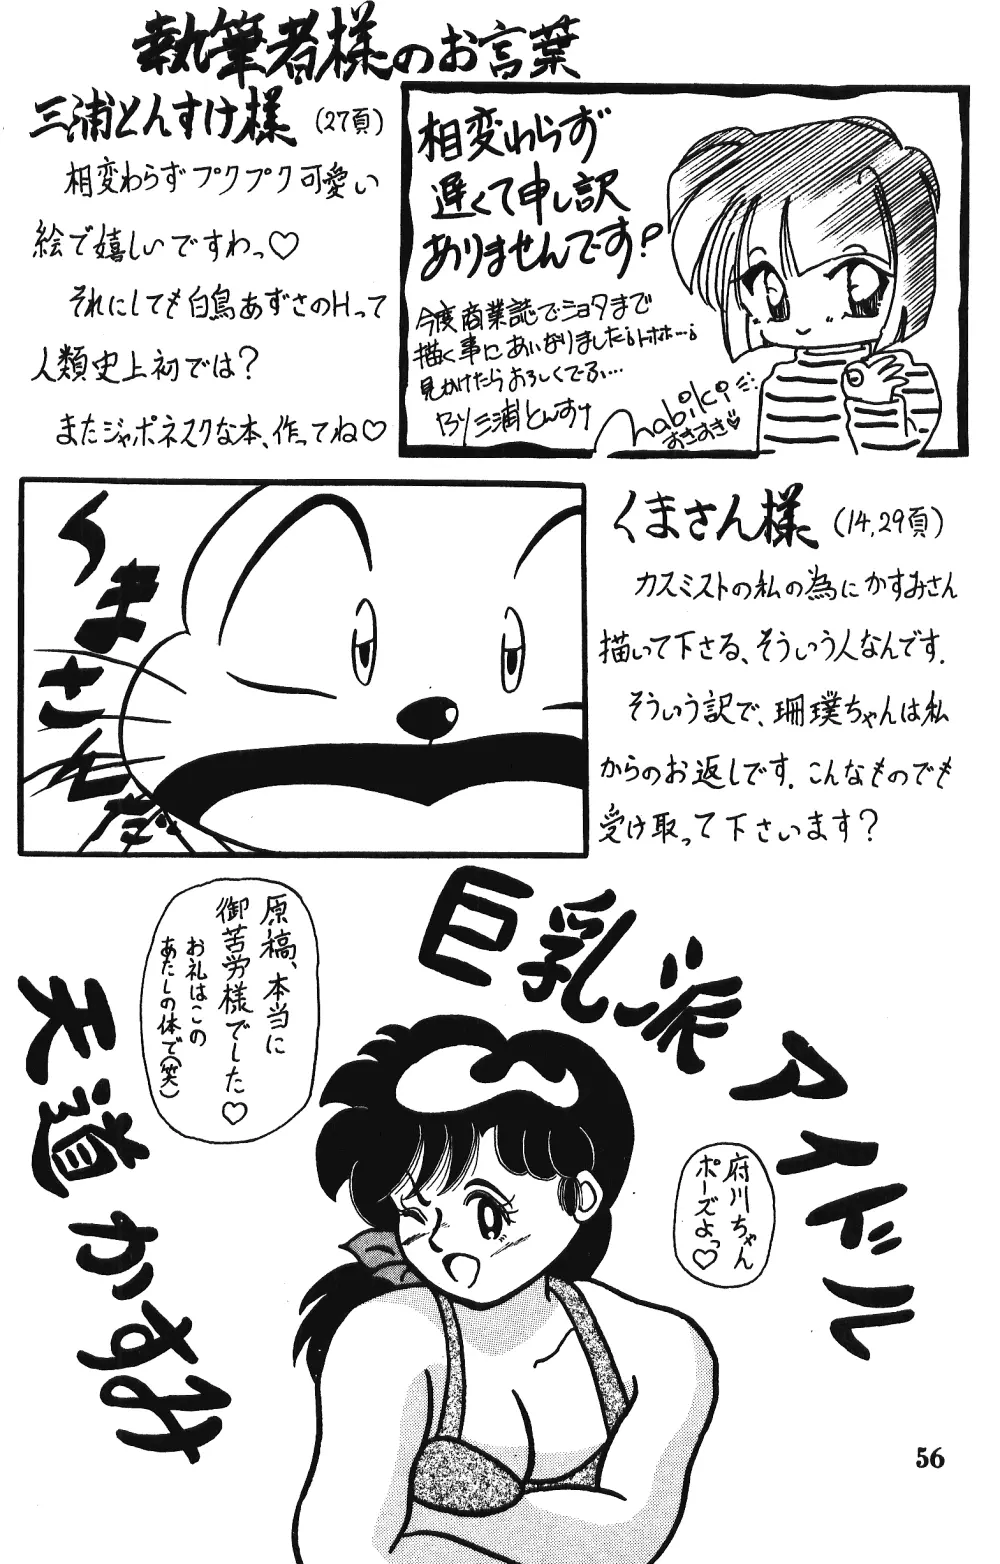 執筆者様のお言葉
三浦とんすけ様 (27頁)
相変わらずプクプク可愛い
絵で嬉しいですわっ♡
それにしても白鳥あずさのHって
人類史上初では?
またジャポネスクな本、作ってね♡
相変わらず
遅くて申し訳
ありませんです?
今度商業誌でショタまで
描く事にあいなりました。トホホ…。
見かけたらよろしくでふ…
三浦とんすけ
nabiki
すきすき♡
くまさんだ
くまさん様 (14,29頁)
カスミストの私の為にかすみさん
描いて下さる、そういう人なんです.
そういう訳で、珊璞ちゃんは私
からのお返しです. こんなものでも
受け取って下さいます?
巨乳派アイドル
天道かすみ
原稿、本当に
御苦労様でした♡
お礼はこの
あたしの体で(笑)
府川ちゃん
ポーズよっ♡
56